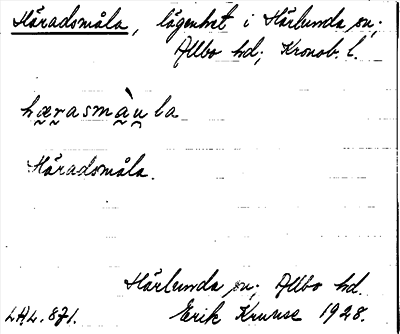 Häradsmåla, lägenhet i Härlunda sn;
Allbo hd; Kronob. l.
hærasmàu̯la
Häradsmåla.
Härlunda sn; Allbo hd.
LAL. 871. Erik Kruuse 1928.